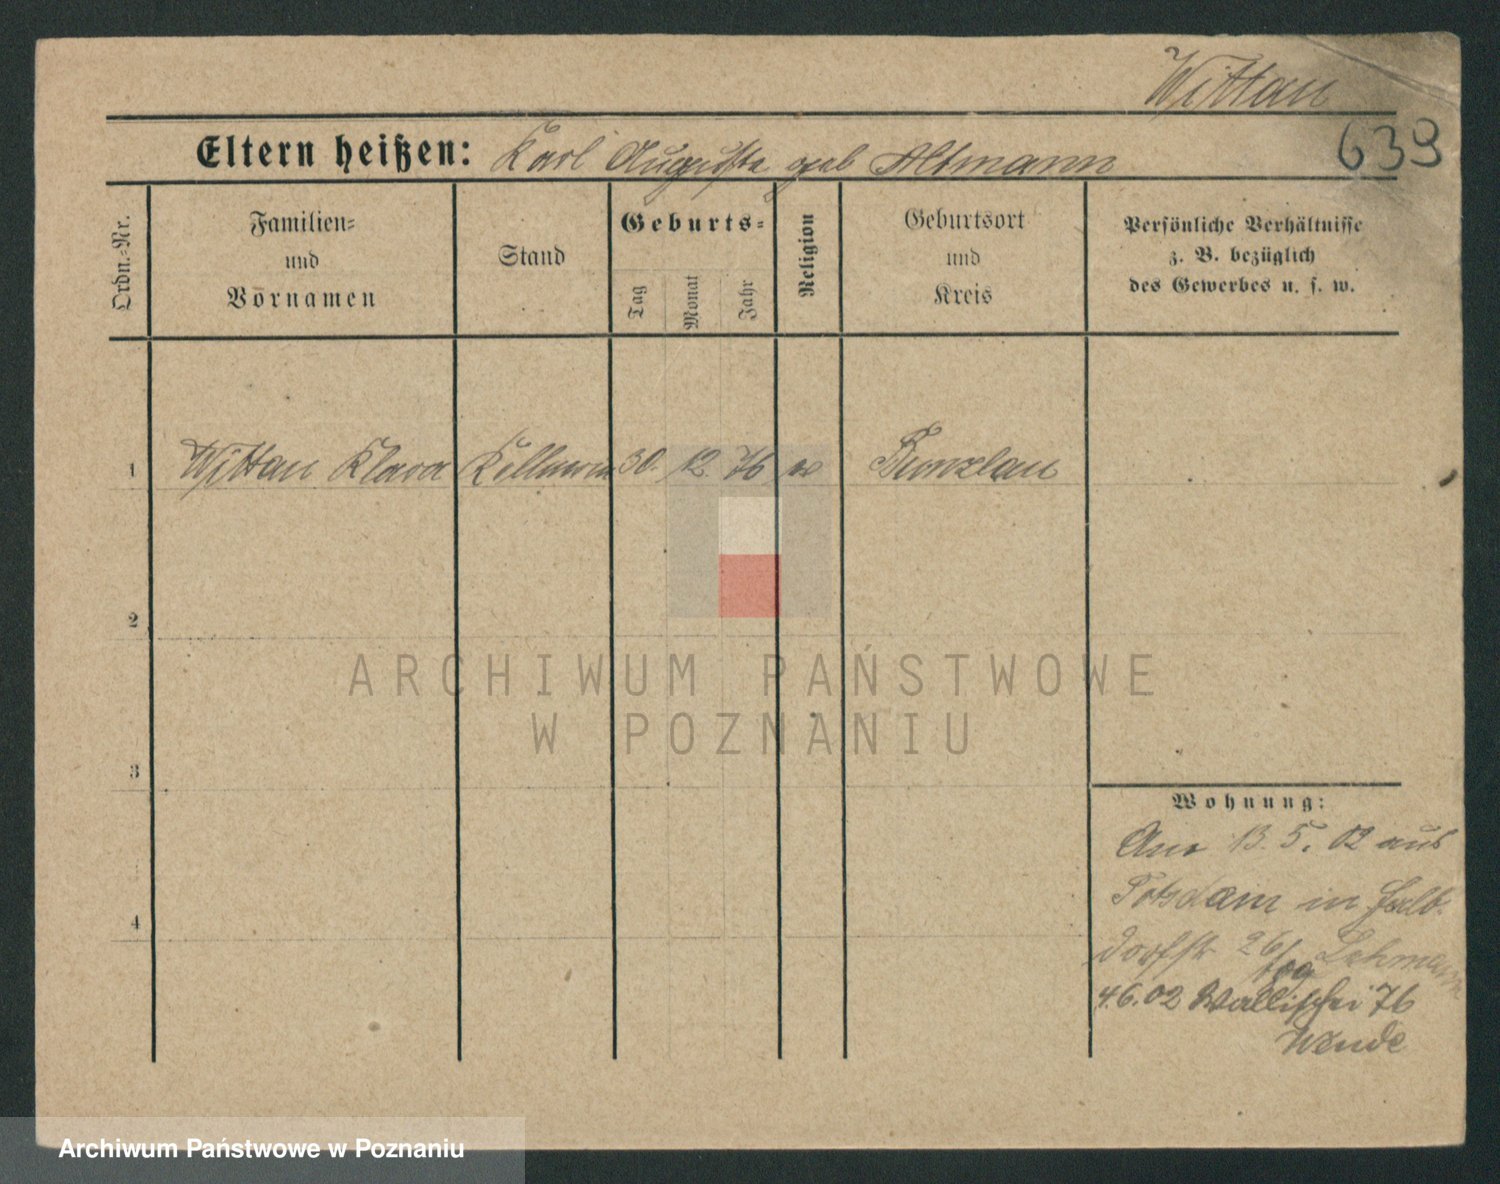 Wittau
639
Eltern heißen: Karl Auguste geb Altmann
Ordn.-Nr.
Familien-
und
Vornamen
Stand
Geburts-
Tag
Monat
Jahr
Religion
Geburtsort
und
Kreis
Persönliche Verhältnisse
z. B. bezüglich
des Gewerbes u. s. w.
1 Wittau Klara Kellnerin 30. 12. 76 Bunzlau
2
ARCHIWUM PAŃSTWOWE
W POZNANIU
3
Wohnung:
13. 5. 02 aus
Potsdam in Halb-
dorfstr 26/ Lehmann
4
4.6.02 Wallischei 76
Wende
Archiwum Państwowe w Poznaniu